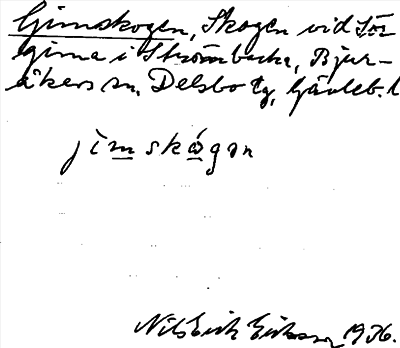 Gimskogen, Skogen vid Sör-
gimma i Strömbacka, Bjur-
åkers sn, Delsbo tg, Gävleb. l
jimskógən
Nils Erik Eriksson 1936.